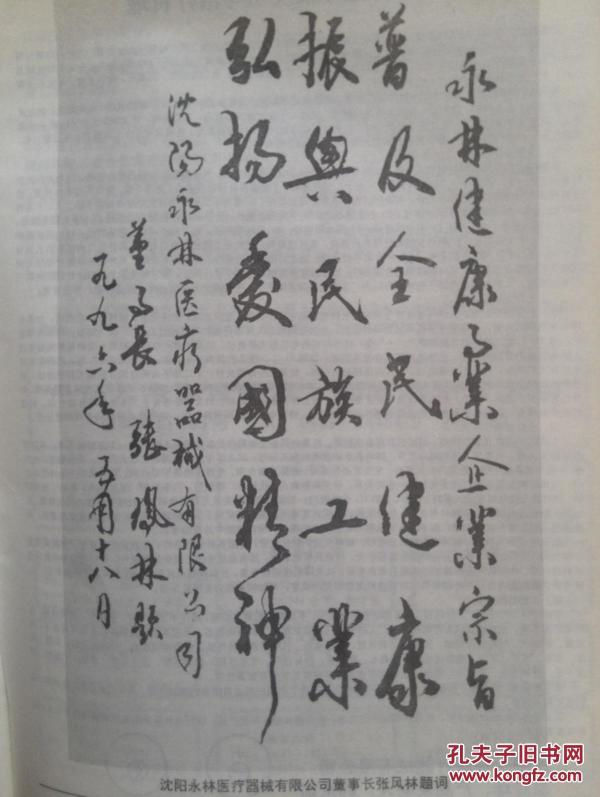 永林健康事業企業宗旨
普及全民健康
振興民族工業
弘扬爱國精神
沈阳永林医疗器械有限公司
董事长 張鳳林題
一九九六年五月十八日
沈阳永林医疗器械有限公司董事长张风林题词
孔夫子旧书网
www.kongfz.com